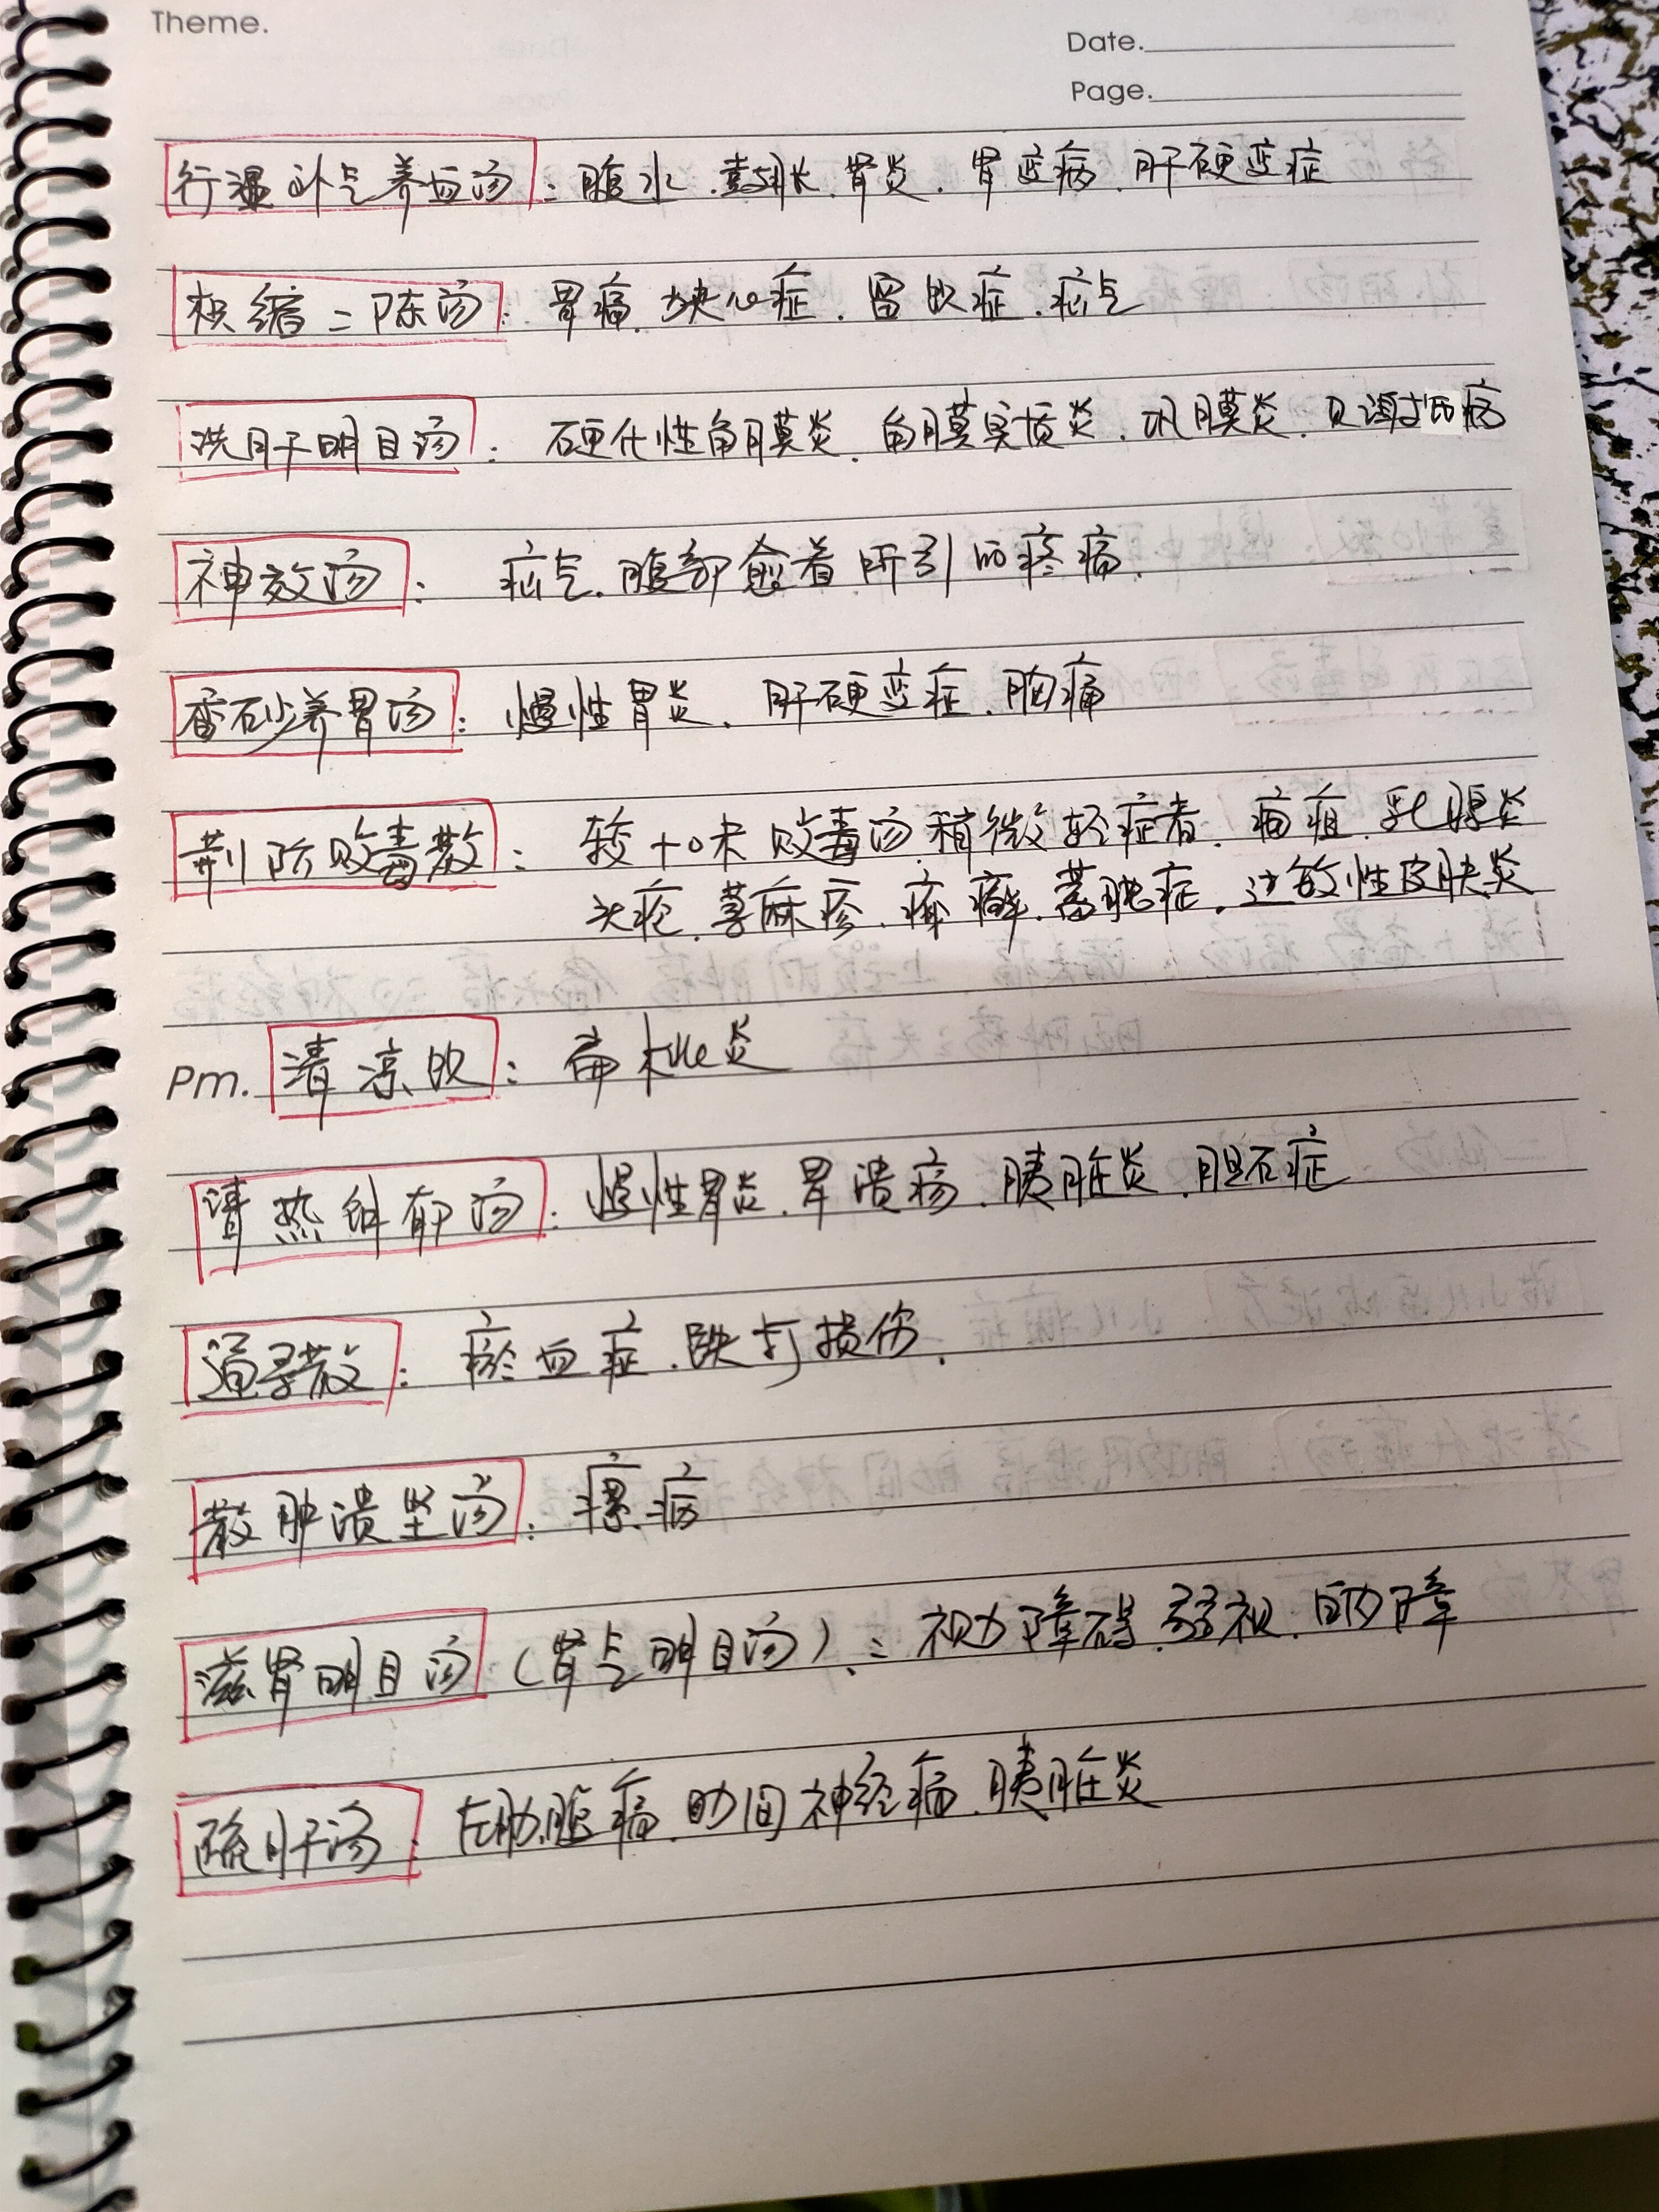 Theme.
Date.
Page.
行湿补气养血汤：腹水．鼓胀．肾炎．胃变病．肝硬变症
枳缩二陈汤：胃痛．块心症．留饮症．疝气
洗肝明目汤：硬化性角膜炎．角膜实质炎．巩膜炎．贝诺おお病
神效汤：疝气．腹部愈着所引的疼痛．
香砂养胃汤：慢性胃炎．肝硬变症．胸痛
荆防败毒散：较十味败毒汤稍微轻症者．痈疽．乳腺炎
头疮．荨麻疹．疥癣．蓄脓症．过敏性皮肤炎
Pm. 清凉饮：扁桃炎
清热解郁汤：慢性胃炎．胃溃疡．胰脏炎．胆石症
通导散：瘀血症．跌打损伤．
散肿溃坚汤：瘰疬
滋肾明目汤（肾气明目汤）：视力障碍．弱视．内障
疏肝汤：左肋腹痛．肋间神经痛．胰脏炎